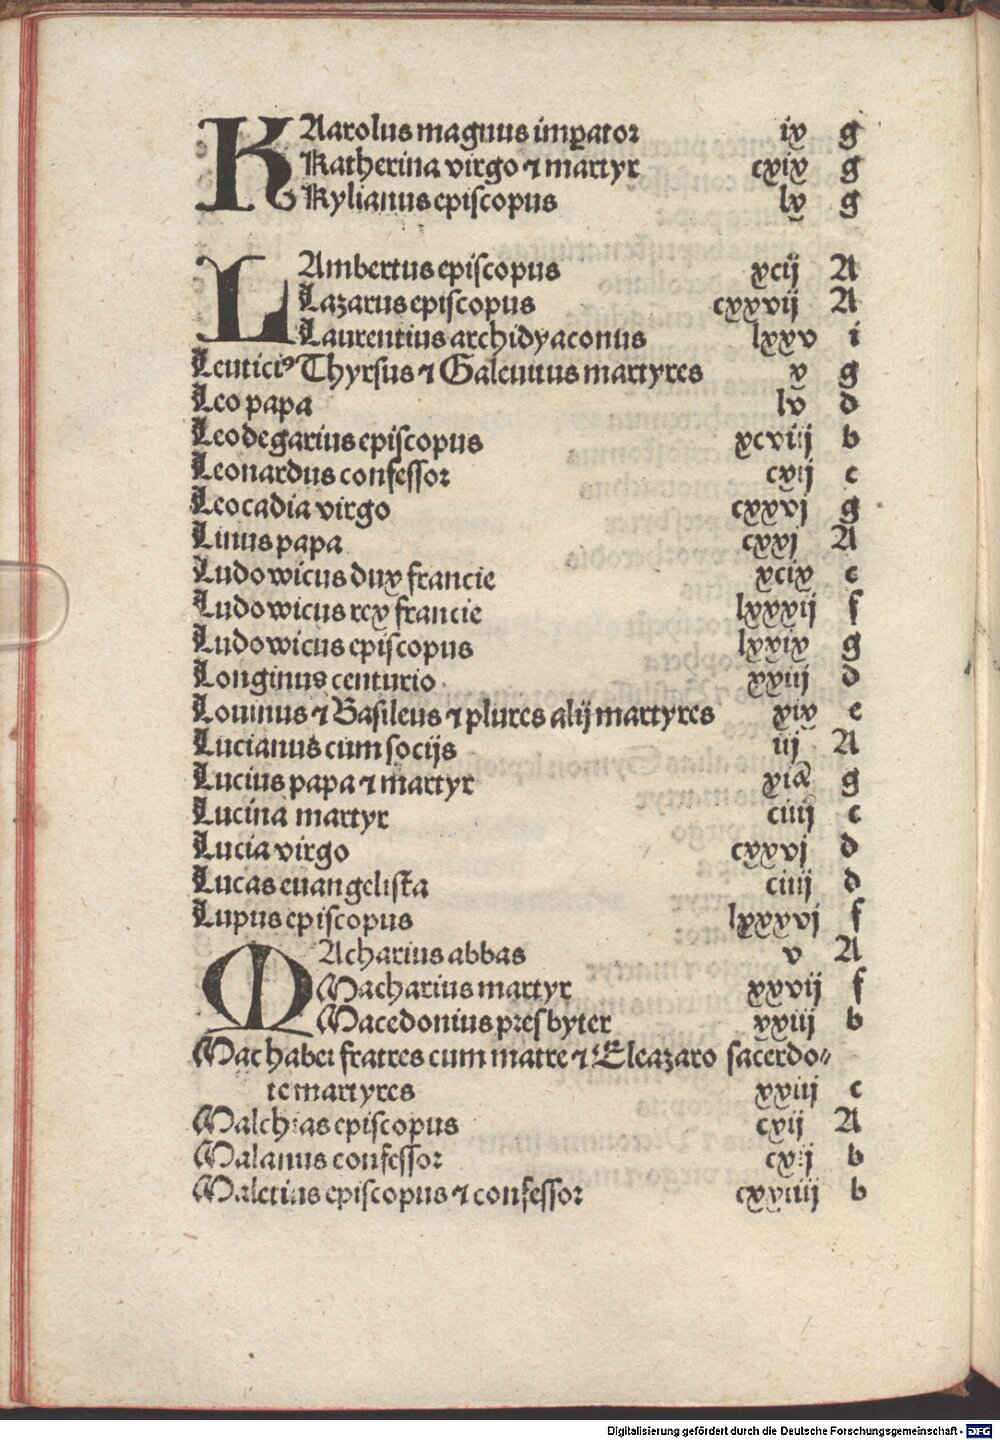 KAarolus magnus imꝑator ix g
Katherina virgo ⁊ martyr cxix g
Kylianus episcopus lx g
LAmbertus episcopus xcij A
Lazarus episcopus cxxvij A
Laurentius archidyaconus lxxv i
Leuticiꝰ Thyrsus ⁊ Galenitus martyres x g
Leo papa lv d
Leodegarius episcopus xcviij b
Leonardus confessor cxij c
Leocadia virgo cxxvj g
Linus papa cxxj A
Ludowicus dux francie xcix c
Ludowicus rex francie lxxxij f
Ludowicus episcopus lxxix g
Longinus centurio xxiij d
Louinus ⁊ Basileus ⁊ plures alij martyres xix e
Lucianus cum socijs iij A
Lucius papa ⁊ martyr g
Lucina martyr ciiij c
Lucia virgo cxxvj d
Lucas euangelista ciiij d
Lupus episcopus lxxxvj f
MAcharius abbas v A
Macharius martyr xxvij f
Macedonius presbyter xxiij b
Machabei fratres cum matre ⁊ Eleazaro sacerdo⸗
te martyres xxiij c
Malchias episcopus cxij A
Malanus confessor cxij b
Maletius episcopus ⁊ confessor cxxiiij b
Digitalisierung gefördert durch die Deutsche Forschungsgemeinschaft - DFG